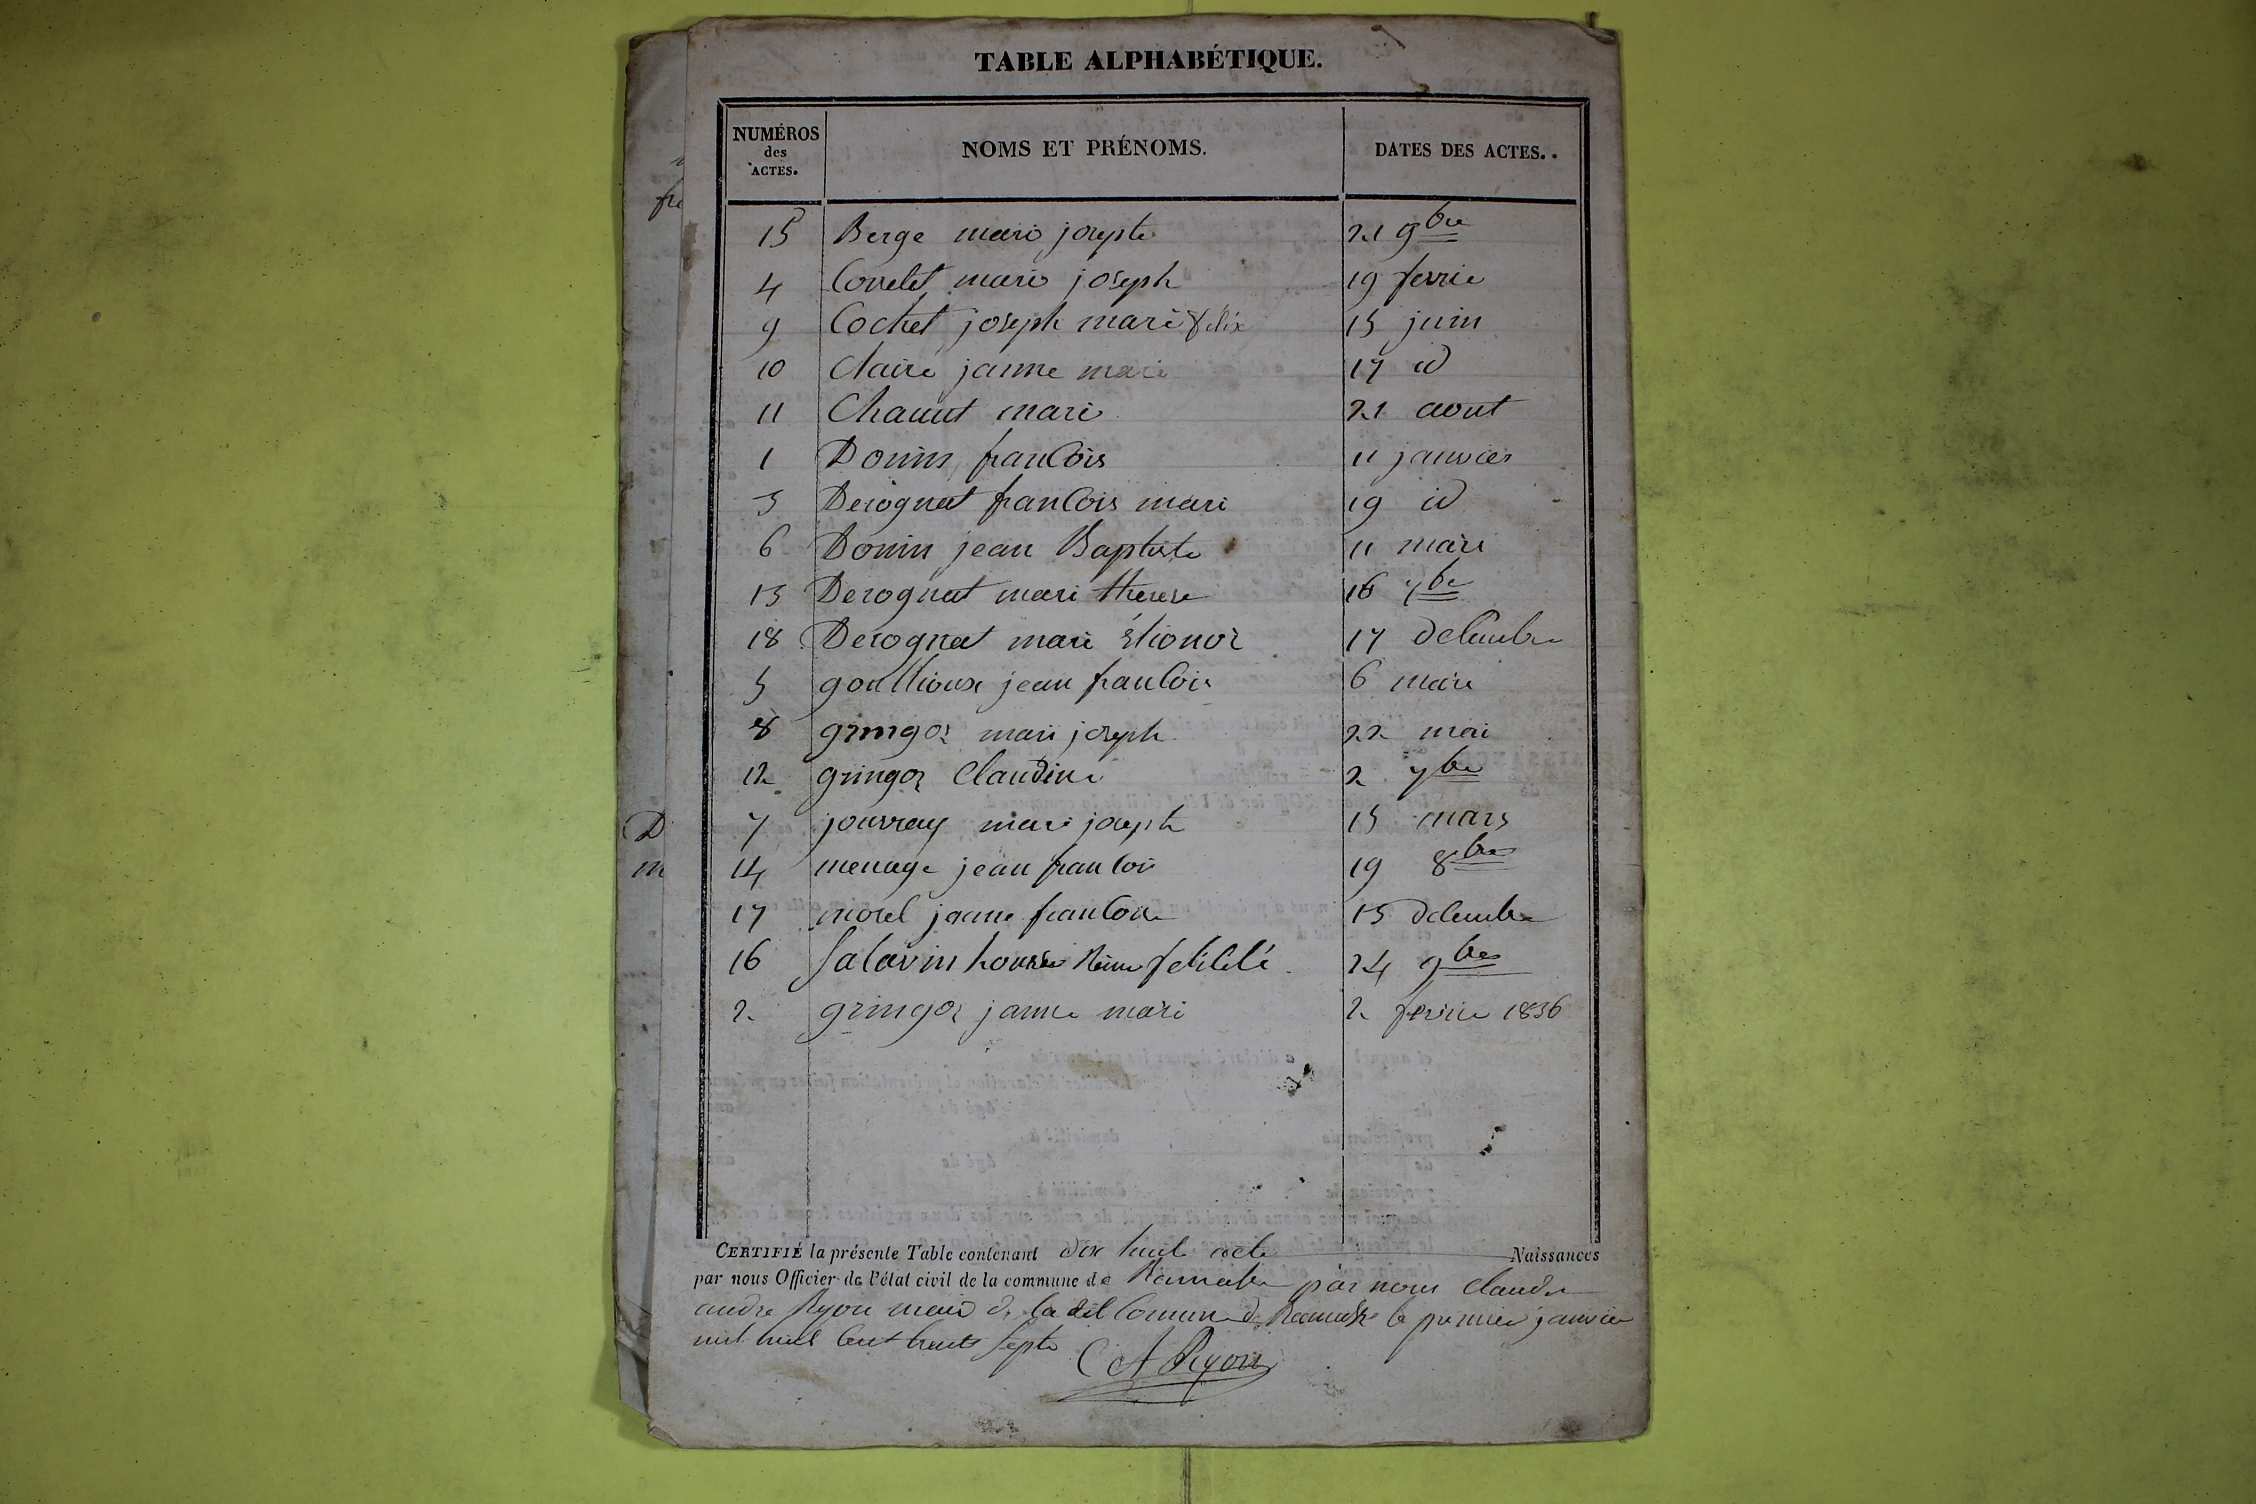 TABLE ALPHABÉTIQUE.
NUMÉROS des ACTES. NOMS ET PRÉNOMS. DATES DES ACTES.
15 Berge mari josepte 21 9bre
4 Correlet mari joseph 19 fevrie
9 Cochet joseph mari félix 15 juin
10 Claire janne mari 17 id
11 Chanut mari 21 aout
1 Donin franCois 11 janvier
3 Derognat franCois mari 19 id
6 Donin jean Baptiste 11 mars
13 Derognat mari therese 16 7bre
18 Derognat mari Élionor 17 deCembre
5 goullioux jean franCois 6 mars
8 gringoz mari joseph 22 mai
12 gringoz Claudine 2 7bre
7 jouvray mari joseph 15 mars
14 menage jean franCois 19 8bre
17 morel janne franCoise 15 deCembre
16 Salavin Reine feliCité 24 9bre
2 gringoz janne mari 2 fevrie 1836
CERTIFIÉ la présente Table contenant dix huit acte Naissances
par nous Officier de l'état civil de la commune de Ramasse par nous Claude
andre Pyon maire de la dit Comune de Ramasse le premier janvier
mil huit Cent trente septe
CA Pyon